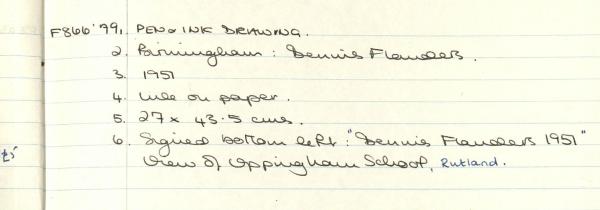 F866'79. 1. PEN & INK DRAWING.
2. Birmingham : Dennis Flanders.
3. 1951
4. Ink on paper.
5. 27 x 43.5 cms.
6. Signed bottom left : "Dennis Flanders 1951"
View of Uppingham School, Rutland.